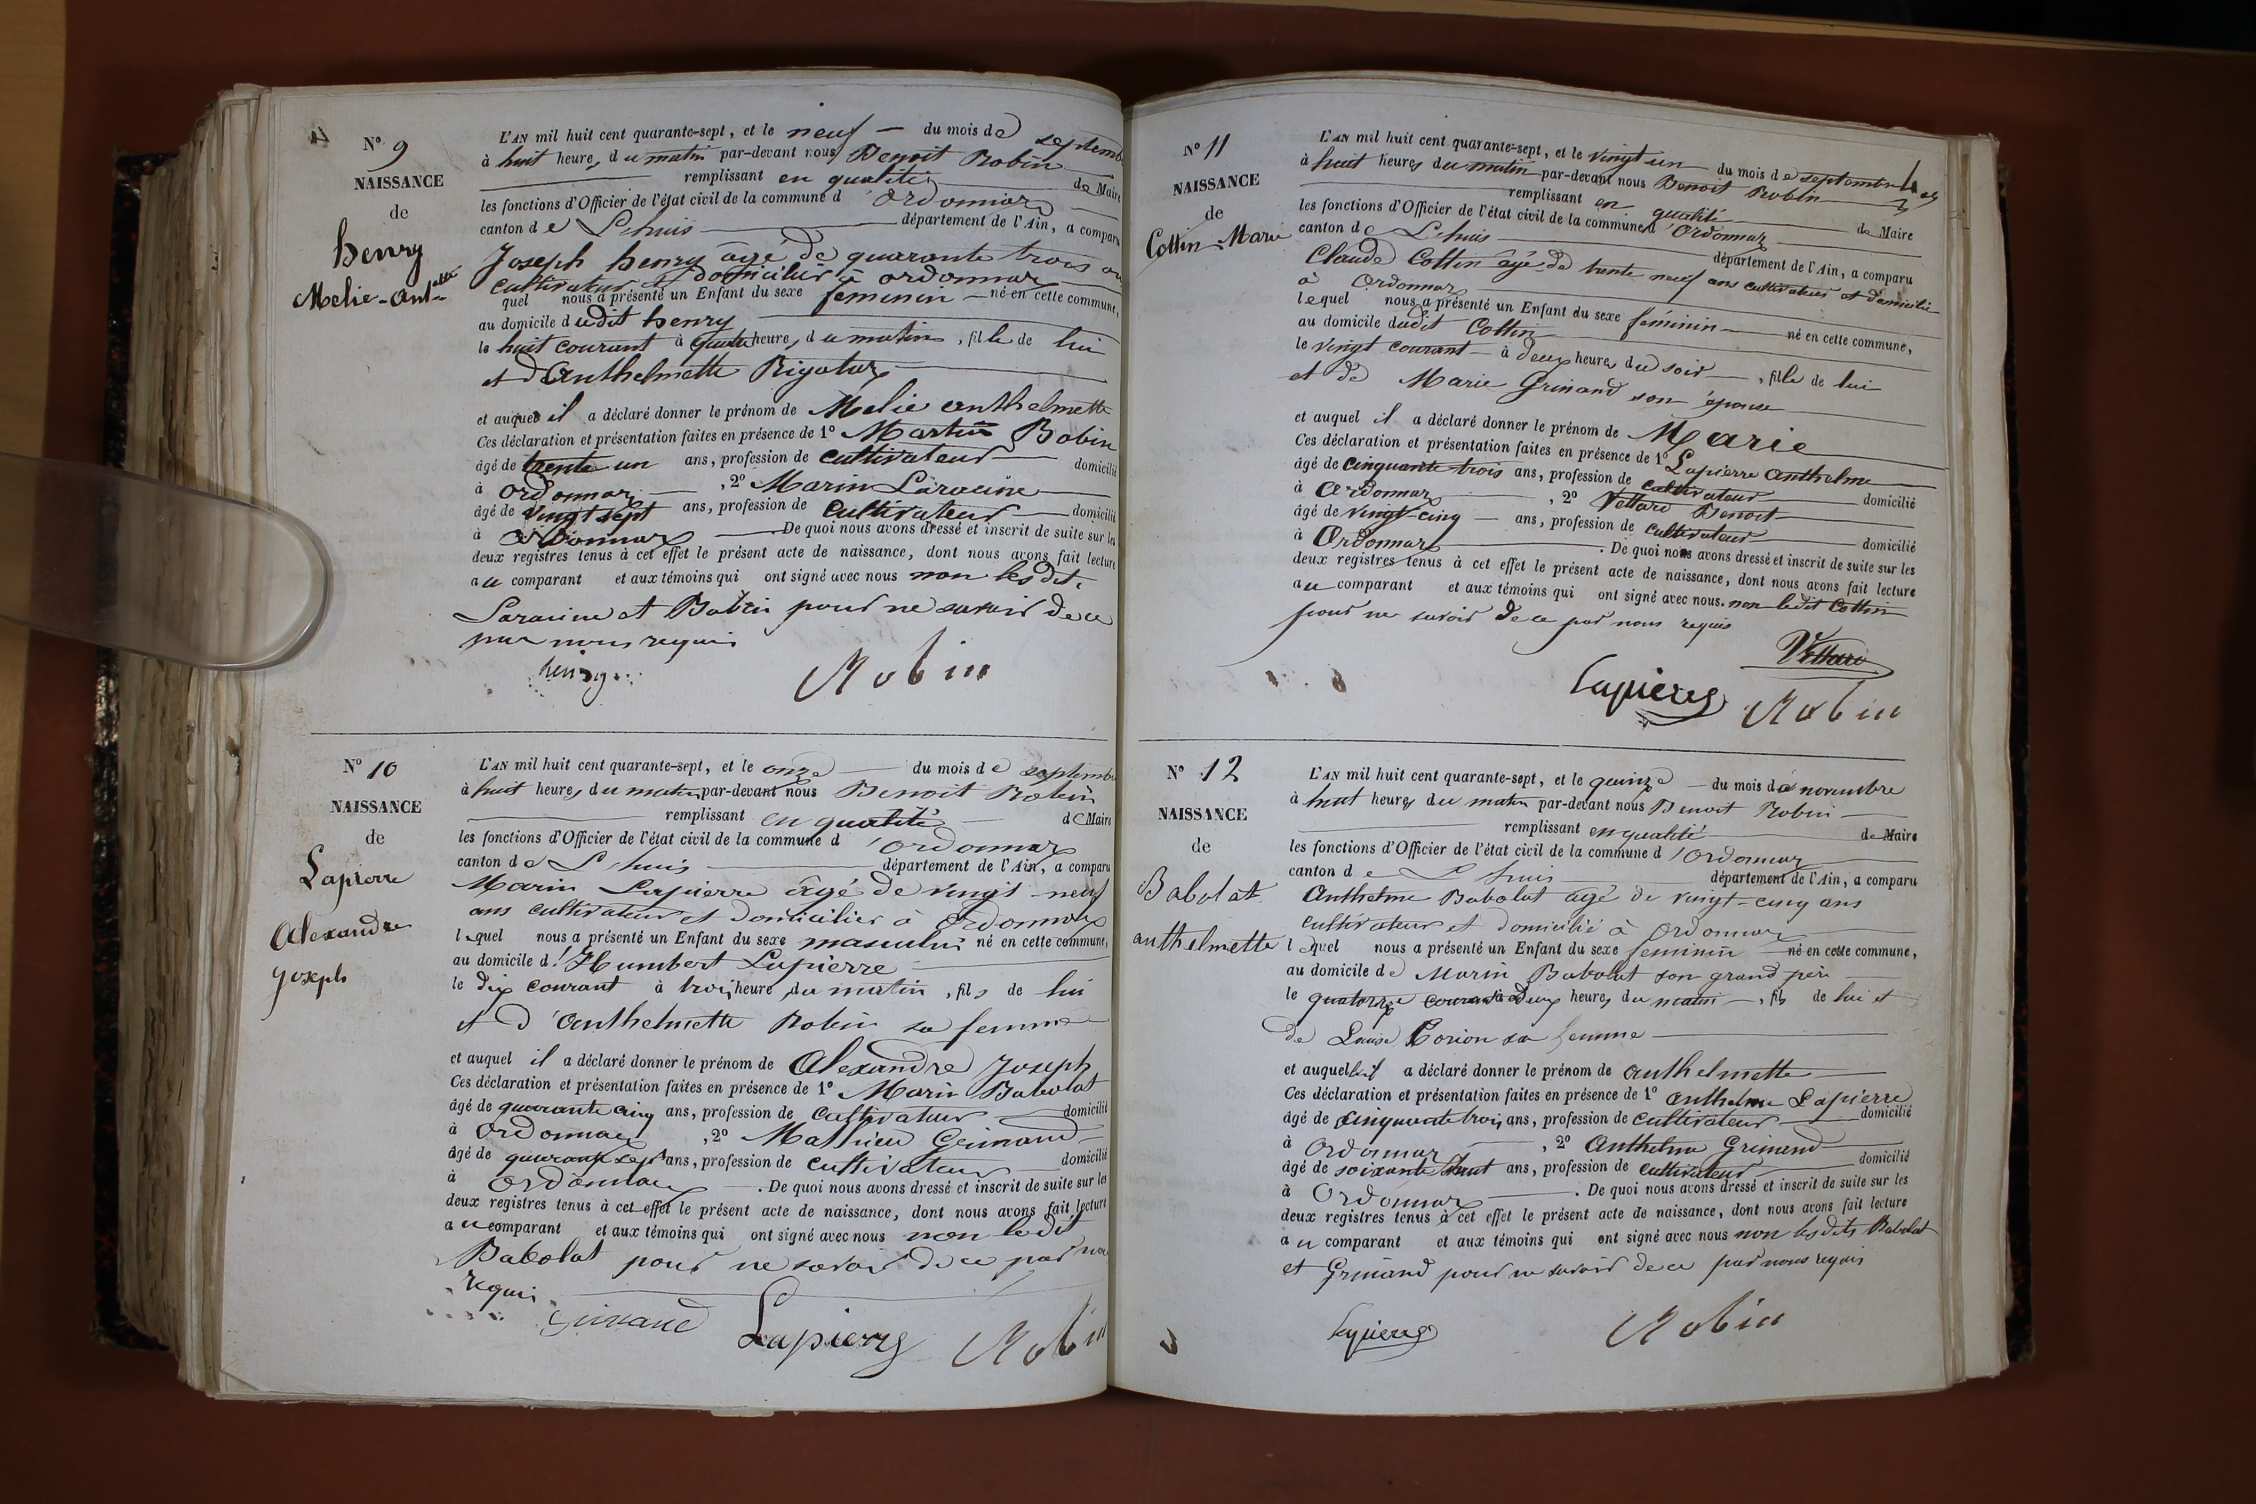 N° 9
NAISSANCE
de
henry
Melie-Anttte
L'AN mil huit cent quarante-sept, et le neuf — du mois de septemb
à huit heures du matin par-devant nous Benoit Robin
remplissant en qualité de Maire
les fonctions d'Officier de l'état civil de la commune d'ordonnaz
canton de L'huis département de l'Ain, a comparu
Joseph henry âgé de quarante trois an
cultivateur et domicilié à ordonnaz
quel nous a présenté un Enfant du sexe feminin — né en cette commune,
au domicile dudit henry
le huit courant à quatre heures du matin, fille de lui
et d'Anthelmette Rigolaz
et auquel il a déclaré donner le prénom de Melie anthelmette
Ces déclaration et présentation faites en présence de 1° Martin Bobin
âgé de trente un ans, profession de cultivateur domicilié
à ordonnaz, 2° Marin Laracine
âgé de vingt sept ans, profession de cultivateur domicilié
à ordonnaz De quoi nous avons dressé et inscrit de suite sur les
deux registres tenus à cet effet le présent acte de naissance, dont nous avons fait lecture
au comparant et aux témoins qui ont signé avec nous non lesdits
Laracine et Bobin pour ne savoir de ce
par nous requis
henry Robin
N° 10
NAISSANCE
de
Lapierre
Alexandre
Joseph
L'AN mil huit cent quarante-sept, et le onze — du mois de septembre
à huit heures du matin par-devant nous Benoit Robin
remplissant en qualité de Maire
les fonctions d'Officier de l'état civil de la commune d'ordonnaz
canton de L'huis département de l'Ain, a comparu
Marin Lapierre âgé de vingt-neuf
ans cultivateur et domicilié à ordonnaz
lequel nous a présenté un Enfant du sexe masculin né en cette commune,
au domicile d'Humbert Lapierre
le dix courant à trois heures du matin, fils de lui
et d'Anthelmette Robin sa femme
et auquel il a déclaré donner le prénom de Alexandre Joseph
Ces déclaration et présentation faites en présence de 1° Marin Babolat
âgé de quarante cinq ans, profession de cultivateur domicilié
à ordonnaz, 2° Mathieu Grinand
âgé de quarante sept ans, profession de cultivateur domicilié
à ordonnaz. De quoi nous avons dressé et inscrit de suite sur les
deux registres tenus à cet effet le présent acte de naissance, dont nous avons fait lecture
au comparant et aux témoins qui ont signé avec nous non ledit
Babolat pour ne savoir de ce par nou
requi
Grinand Lapierre Robin
N° 11
NAISSANCE
de
Cottin Marie
L'AN mil huit cent quarante-sept, et le vingt un — du mois de septembre
à huit heures du matin par-devant nous Benoit Robin
remplissant en qualité de Maire
les fonctions d'Officier de l'état civil de la commune d'Ordonnaz
canton de L'huis département de l'Ain, a comparu
Claude Cottin âgé de trente neuf ans cultivateur et domicilié
à Ordonnaz
lequel nous a présenté un Enfant du sexe féminin — né en cette commune,
au domicile dudit Cottin
le vingt courant — à deux heures du soir —, fille de lui
et de Marie Grinand son épouse
et auquel il a déclaré donner le prénom de Marie
Ces déclaration et présentation faites en présence de 1° Lapierre Anthelme
âgé de cinquante trois ans, profession de cultivateur domicilié
à Ordonnaz, 2° Vettard Benoit
âgé de vingt-cinq — ans, profession de cultivateur domicilié
à Ordonnaz. De quoi nous avons dressé et inscrit de suite sur les
deux registres tenus à cet effet le présent acte de naissance, dont nous avons fait lecture
au comparant et aux témoins qui ont signé avec nous. non ledit Cottin
pour ne savoir de ce par nous requis
Vettard
Lapierre Robin
N° 12
NAISSANCE
de
Babolat
anthelmette
L'AN mil huit cent quarante-sept, et le quinze — du mois de novembre
à huit heures du matin par-devant nous Benoit Robin
remplissant en qualité de Maire
les fonctions d'Officier de l'état civil de la commune d'Ordonnaz
canton de L'huis département de l'Ain, a comparu
Anthelme Babolat âgé de vingt-cinq ans
cultivateur et domicilié à Ordonnaz
lequel nous a présenté un Enfant du sexe feminin né en cette commune,
au domicile de Marin Babolat son grand père
le quatorze courant à deux heures du matin —, fils de lui et
de Louise sa femme
et auquel il a déclaré donner le prénom de anthelmette
Ces déclaration et présentation faites en présence de 1° anthelme Lapierre
âgé de cinquante trois ans, profession de cultivateur domicilié
à Ordonnaz, 2° Anthelme Grinand
âgé de soixante ans, profession de cultivateur domicilié
à Ordonnaz. De quoi nous avons dressé et inscrit de suite sur les
deux registres tenus à cet effet le présent acte de naissance, dont nous avons fait lecture
au comparant et aux témoins qui ont signé avec nous non lesdits Babolat
et Grinand pour ne savoir de ce par nous requis
Lapierre Robin